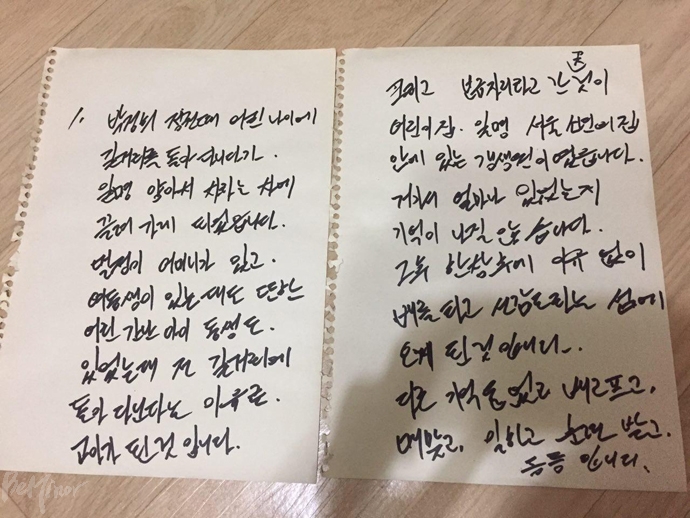 1. 박정희 정권때 어린 나이에
길거리를 돌아 다니다가.
일명 잡아서 사라는 차에
끌려 가게 되었읍니다.
멀쩡히 어머니가 있고.
여동생이 있는데도 또
어린 갓난 아이 동생도.
있었는데 전 길거리에
돌아 다닌다는 이유로.
고아가 된 것 입니다.
그리고 타고 간 곳이
어린이집. 일명 서울 소년의 집
안에 있는
거기서 얼마나 있었는지
기억이 나질 않습니다.
그후 한참 후에 이유 없이
배를 타고 선감도라는 섬에
오게 된 것 입니다.
다른 기억은 없고 배고프고.
매맞고. 일하고 받고.
등등 입니다.